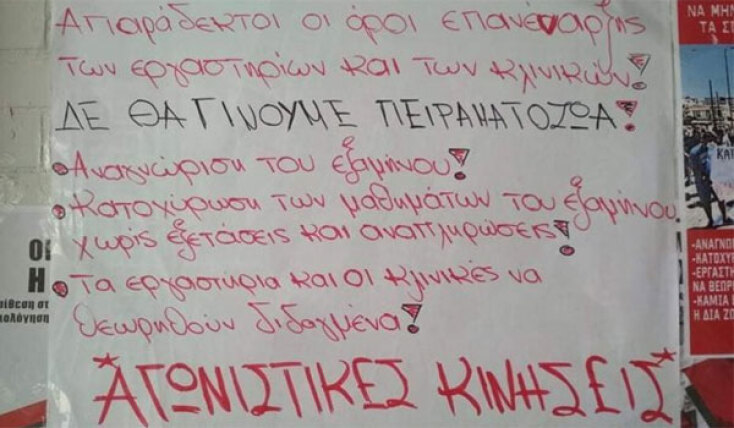 Απαράδεκτοι οι όροι επανέναρξης
των εργαστηρίων και των κλινικών!
ΔΕ ΘΑ ΓΙΝΟΥΜΕ ΠΕΙΡΑΜΑΤΟΖΩΑ!
• Αναγνώριση του εξαμήνου!
• Κατοχύρωση των μαθημάτων του εξαμήνου
χωρίς εξετάσεις και αναπληρώσεις!
• Τα εργαστήρια και οι κλινικές να
θεωρηθούν διδαγμένα!
*ΑΓΩΝΙΣΤΙΚΕΣ ΚΙΝΗΣΕΙΣ*
ΝΑ ΜΗΝ
ΤΑ ΣΤ
ΚΑΙ
-ΑΝΑΓΝΩ
-ΚΑΤΟΧΥ
-ΕΡΓΑΣΤΗ
ΝΑ ΘΕΩΡ
-ΚΑΜΙΑ
Η ΔΙΑ ΖΩ
ΟΙ
Η
ίθεση στ
ιολόγηση